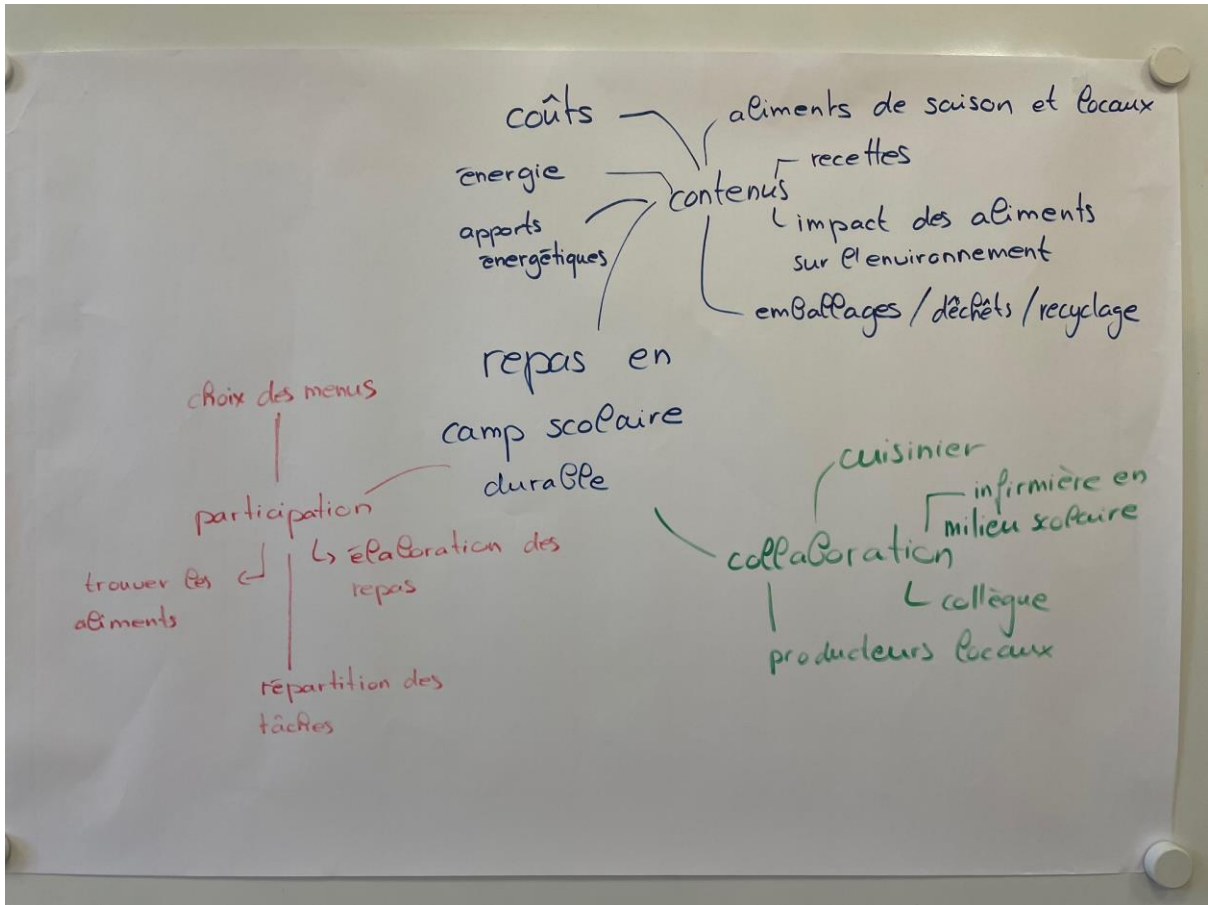 coûts
aliments de saison et locaux
énergie
recettes
contenus
apports
énergétiques
impact des aliments
sur l'environnement
emballages / déchêts / recyclage
repas en
camp scolaire
durable
choix des menus
participation
élaboration des
repas
trouver les
aliments
répartition des
tâches
cuisinier
infirmière en
milieu scolaire
collaboration
collègue
producteurs locaux